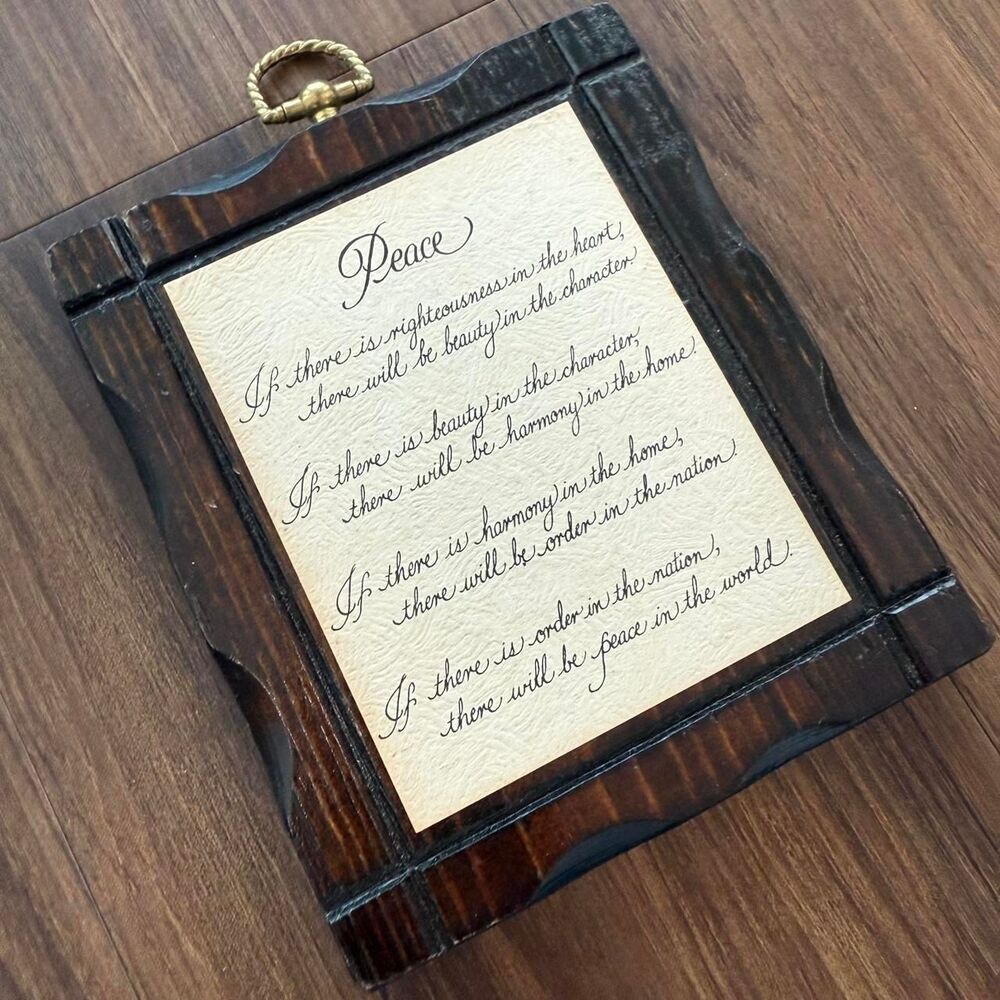 Peace
If there is righteousness in the heart,
there will be beauty in the character.
If there is beauty in the character,
there will be harmony in the home.
If there is harmony in the home,
there will be order in the nation.
If there is order in the nation,
there will be peace in the world.